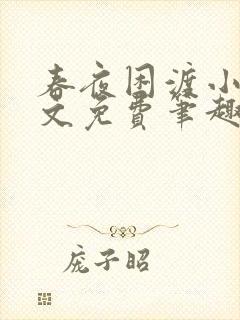 春夜困渡小
文免费笔趣
庞子昭